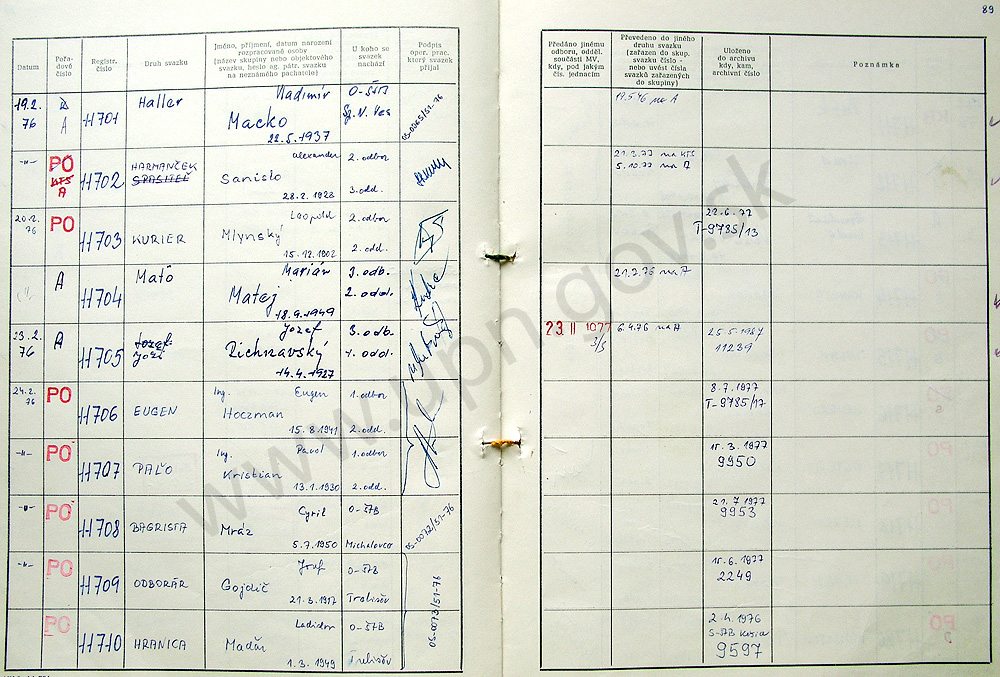 89
Datum
Pořadové číslo
Registr. číslo
Druh svazku
Jméno, příjmení, datum narození rozpracované osoby (název skupiny nebo objektového svazku, heslo ag. pátr. svazku na neznámého pachatele)
U koho se svazek nachází
Podpis oper. prac. který svazek přijal
Předáno jinému odboru, odděl. součásti MV, kdy, pod jakým čís. jednacím
Převedeno do jiného druhu svazku (zařazen do skup. svazku číslo - nebo uvést čísla svazků zařazených do skupiny)
Uloženo do archivu kdy, kam, archivní číslo
Poznámka
19.2. 76
A
11701
Haller
Vladimír
Macko
22.5.1937
O-ŠTB
17.5.76 na A
-"-
PO
KTS
A
11702
HARMANČEK
SPASITEĽ
Alexander
Sanislo
2. odbor
3. odd.
21.3.77 na KTS
5.10.77 na A
20.2. 76
PO
11703
KURIER
Leopold
Mlynský
15.12.1902
2. odbor
2. odd.
T-9785/13
A
11704
Maťo
Marián
Mataj
18.9.1949
3. odb.
2. odd.
21.7.76 na A
23.2. 76
A
11705
Jozef
Joži
Jozef
Richnavský
14.4.1927
3. odb.
1. odd.
23. II 1977
6.4.76 na A
25.5.1987
11239
24.2. 76
PO
11706
EUGEN
Ing. Eugen
Hoczman
15.8.1941
1. odbor
2. odd.
8.7.1977
T-9785/17
-"-
PO
11707
PAĽO
Ing. Pavol
Kristian
13.1.1930
1. odbor
2. odd.
15.3.1977
9950
-"-
PO
11708
BAGRISTA
Cyril
Mráz
5.7.1950
O-ŠTB
Michalovce
OS-0072/51-76
21.7.1977
9953
-"-
PO
11709
ODBORÁR
Jozef
Gojdič
21.3.1917
O-ŠTB
Trebišov
OS-0073/51-76
15.6.1977
2249
PO
11710
HRANICA
Ladislav
Maďar
1.3.1949
O-ŠTB
Trebišov
2.4.1976
9597
www.upn.gov.sk